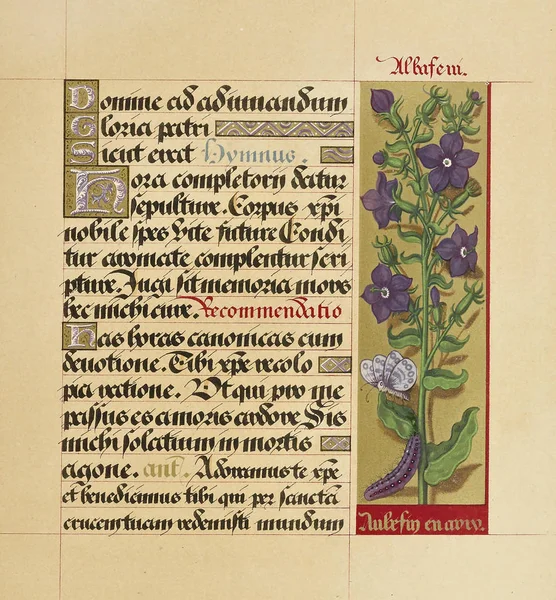 Albafem.
Domine ad adiuuandum
Gloria patri
Sicut erat Hymnus.
Hora completorij datur
sepulture. Corpus xp̄i
nobile spes vite future Condi
tur aromate complentur scri
pture. Iugi sit memoria mors
hec michi cure. Recommendatio
Has horas canonicas cum
deuotione. Tibi xp̄e recolo
pia ratione. Vt qui pro me
passus es amoris ardore Sis
michi solatium in mortis
agone. ant̄. Adoramus te xp̄e
et benedicimus tibi qui per sanctā
crucem tuam redemisti mundum